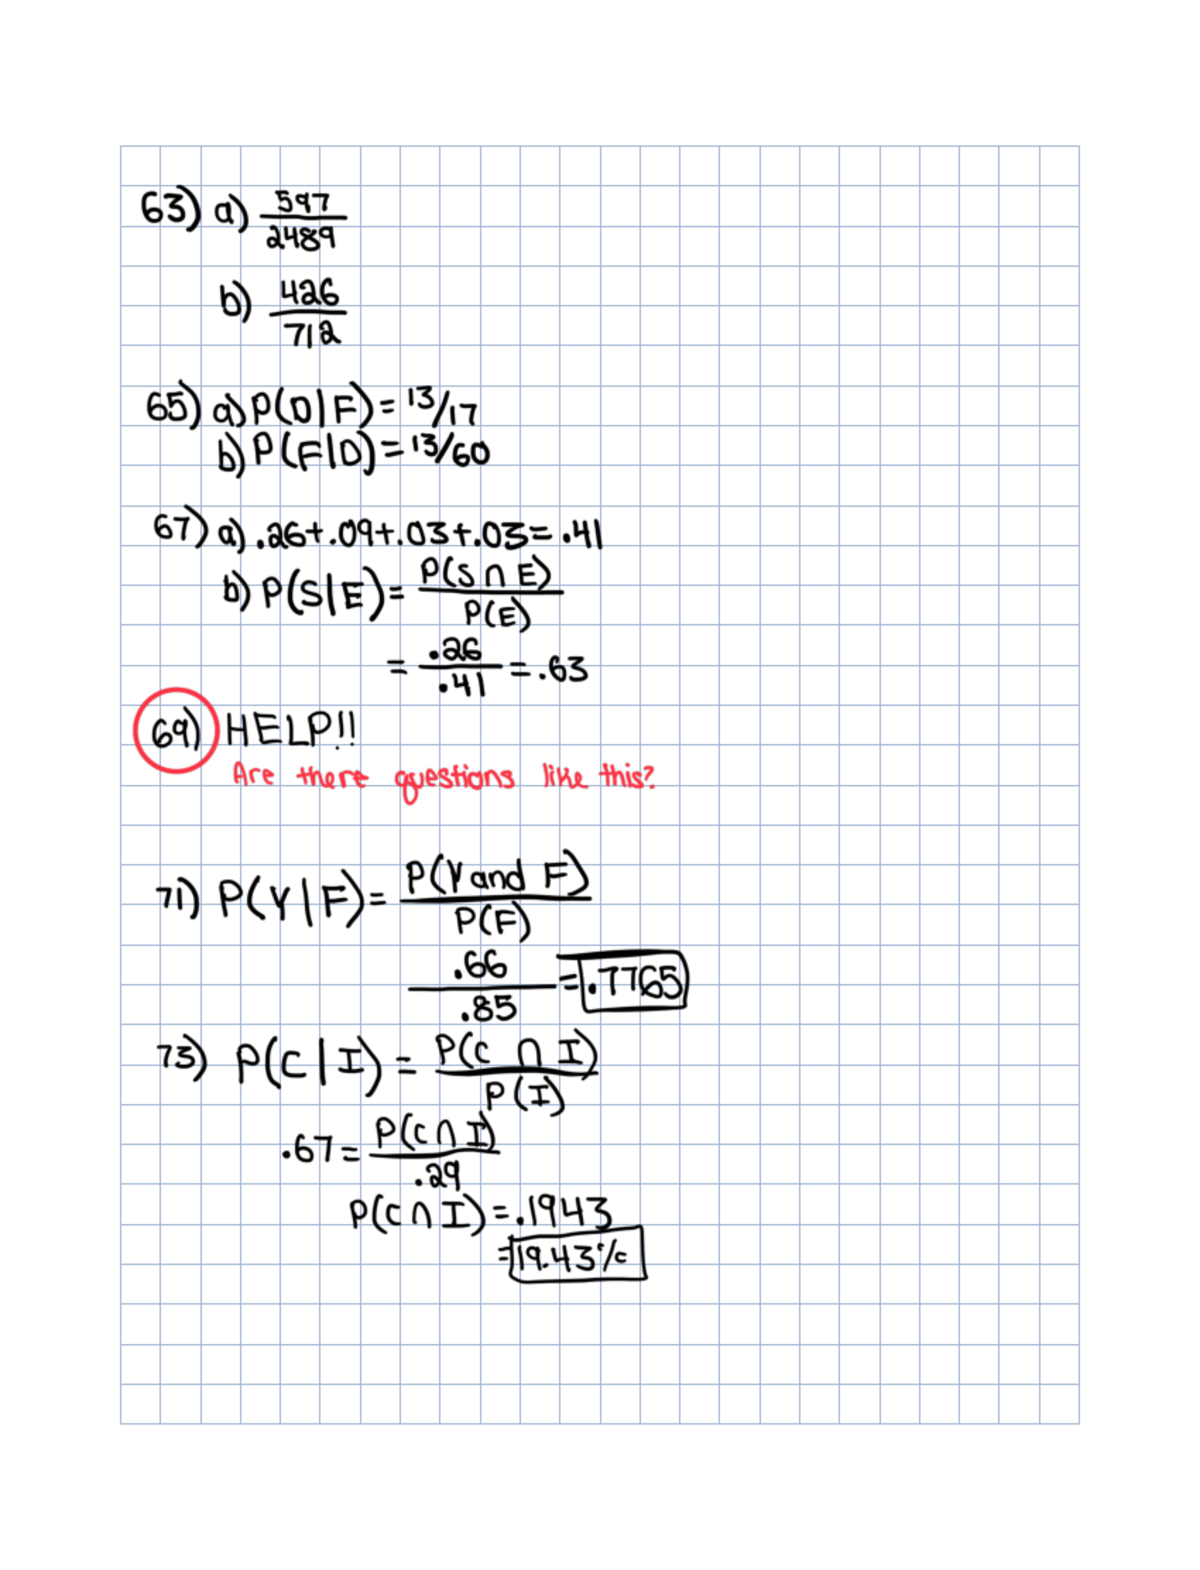 63) a) 597/2489
b) 426/712
65) a) P(D|F) = 13/17
b) P(F|D) = 13/60
67) a) .26+.09+.03+.03=.41
b) P(S|E) = P(S ∩ E)/P(E)
= .26/.41 = .63
69) HELP!!
Are there questions like this?
71) P(Y|F) = P(Y and F)/P(F)
.66/.85 = .7765
73) P(C|I) = P(C ∩ I)/P(I)
.67 = P(C ∩ I)/.29
P(C ∩ I) = .1943
= 19.43%